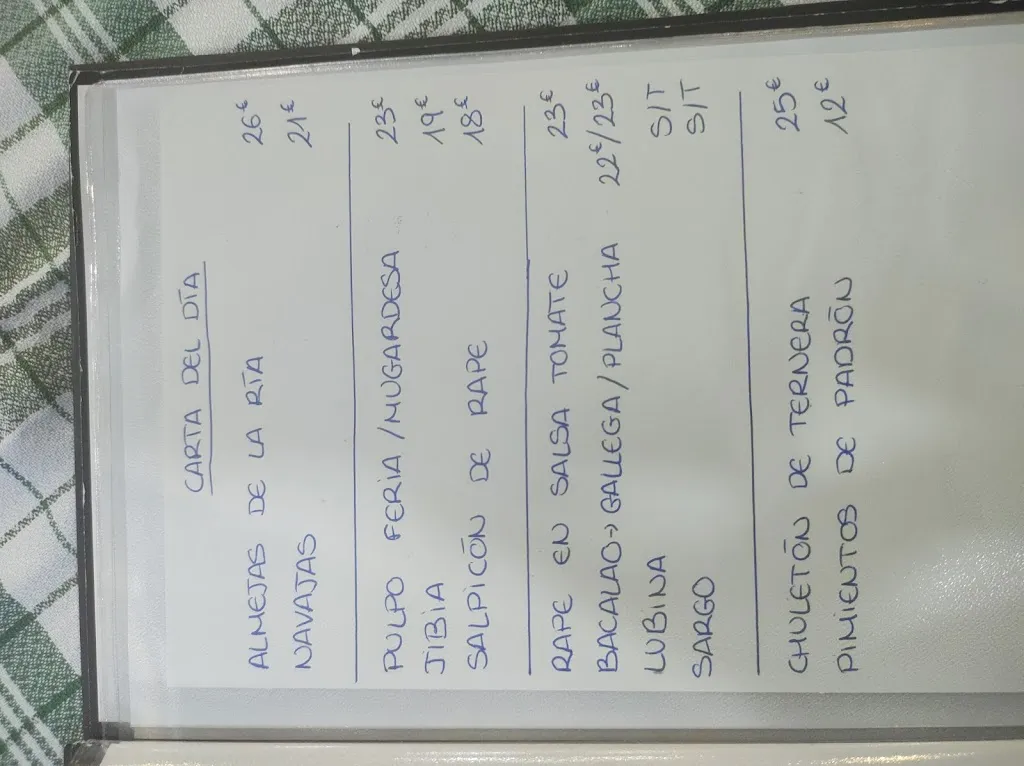 CARTA DEL DÍA
ALMEJAS DE LA RÍA 26€
NAVAJAS 21€
PULPO FERIA/MUGARDESA 23€
JIBIA 19€
SALPICÓN DE RAPE 18€
RAPE EN SALSA TOMATE 23€
BACALAO→GALLEGA/PLANCHA 22€/23€
LUBINA S/T
SARGO S/T
CHULETÓN DE TERNERA 25€
PIMIENTOS DE PADRÓN 12€